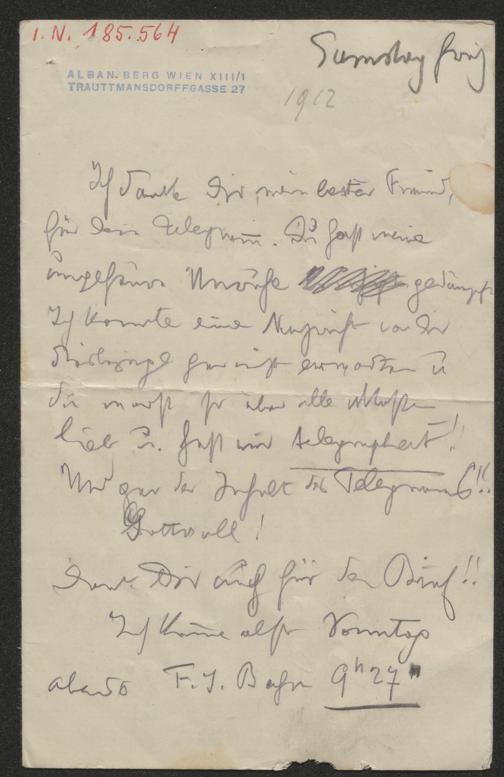 I. N. 185.564
Samstag früh
ALBAN BERG WIEN XIII/1
TRAUTTMANSDORFFGASSE 27
1912
Ich danke Dir, mein bester Freund,
für Dein Telegramm. Du hast meine
ungeheure Unruhe gedämpft
Ich konnte eine Nachricht von Dir
diesbezügl gar nicht erwarten u
Du warst so über alle Maßen
lieb u. hast mir telegraphiert!!
Und gar der Inhalt des Telegramms!!
Gottvoll!
Dank Dir auch für den Brief!!
Ich komme also Sonntags
abends F. J. Bahn 9h 27